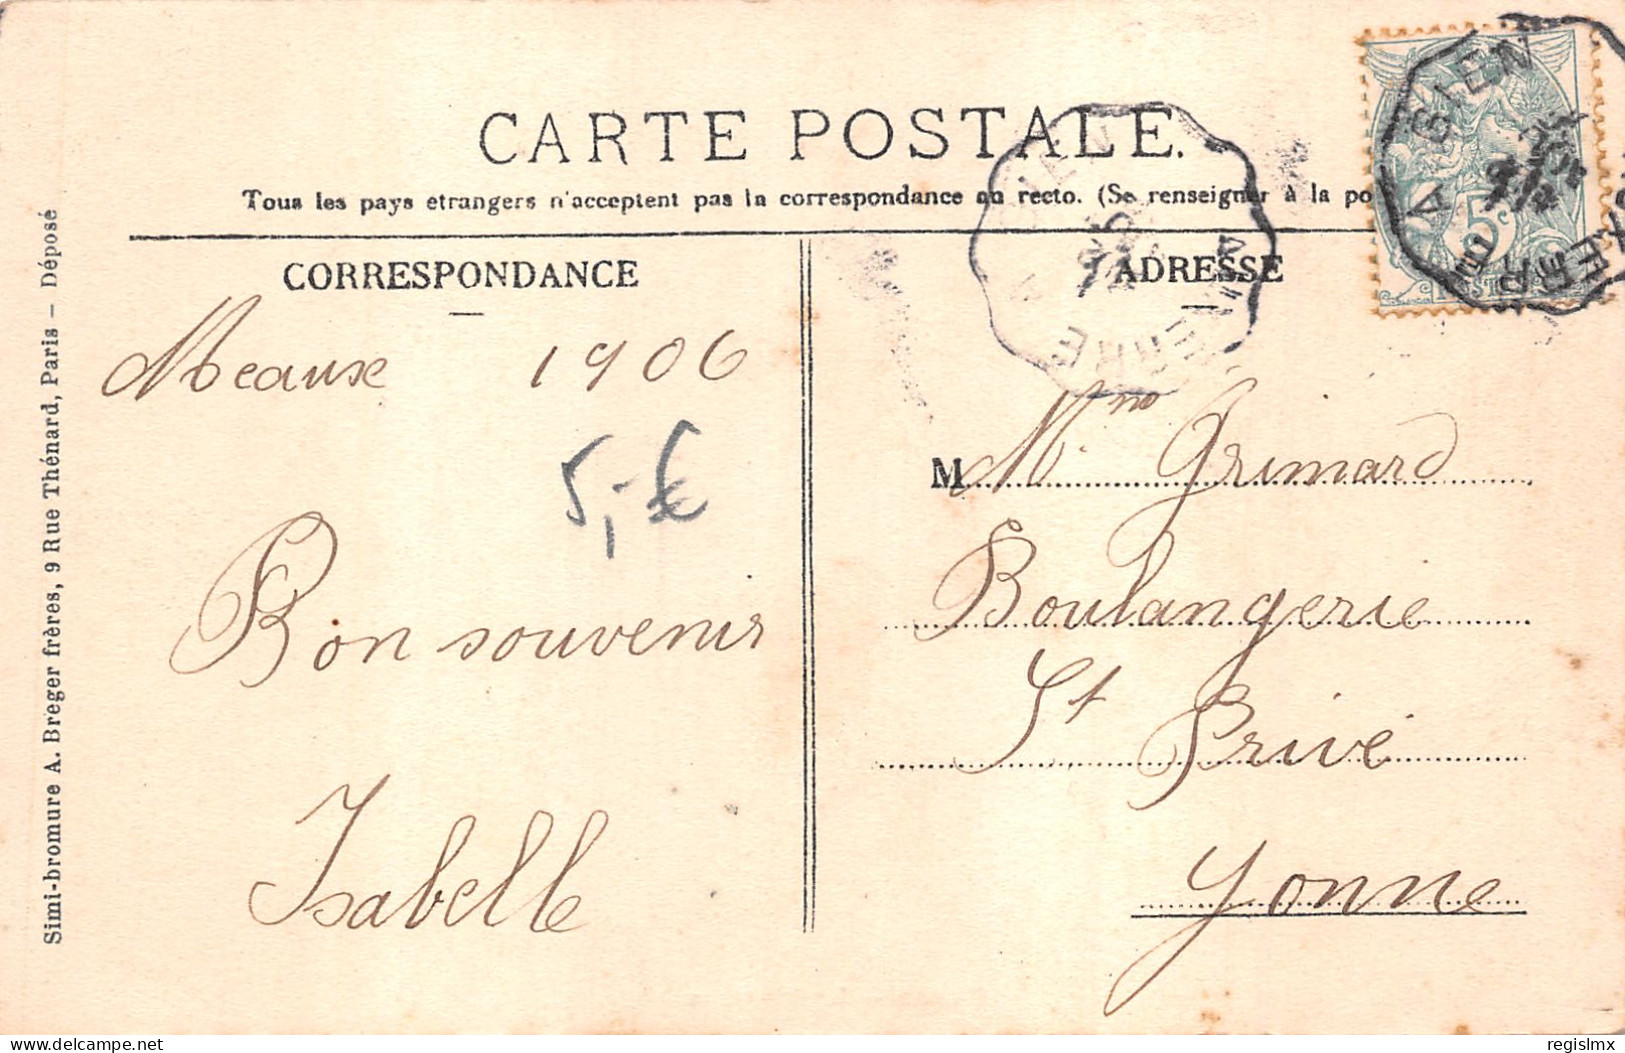 CARTE POSTALE.
Tous les pays etrangers n'acceptent pas la correspondance au recto. (Se renseigner à la po
CORRESPONDANCE
ADRESSE
Simi-bromure A. Breger frères, 9 Rue Thénard, Paris - Déposé
Meaux 1906
5,-€
Bon souvenir
Isabelle
M Mme Grimard
Boulangerie
St Privé
Yonne
A GIEN
5c
delcampe.net
regislmx